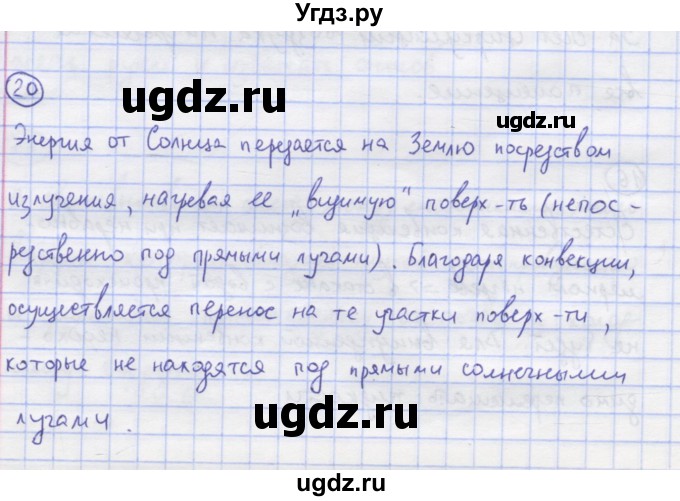 Угдз.ру
20
ugdz.ru
ugdz.ru
Энергия от Солнца передается на Землю посредством
излучения, нагревая ее „видимую" поверх-ть (непос-
редственно под прямыми лучами). Благодаря конвекции,
осуществляется перенос на те участки поверх-ти,
которые не находятся под прямыми солнечными
лучами.
ugdz.ru
ugdz.ru